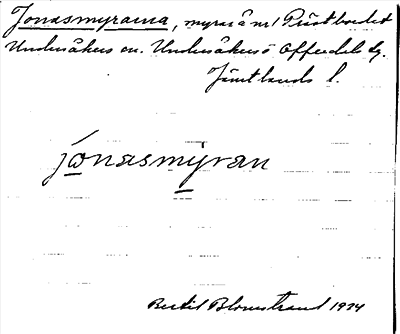 Jonasmyrarna, myrar å nr 1 Prästbordet
Undersåkers sn. Undersåkers o Offerdals tg.
Jämtlands l.
jωnasmýran
Bertil Blomstrand 1924